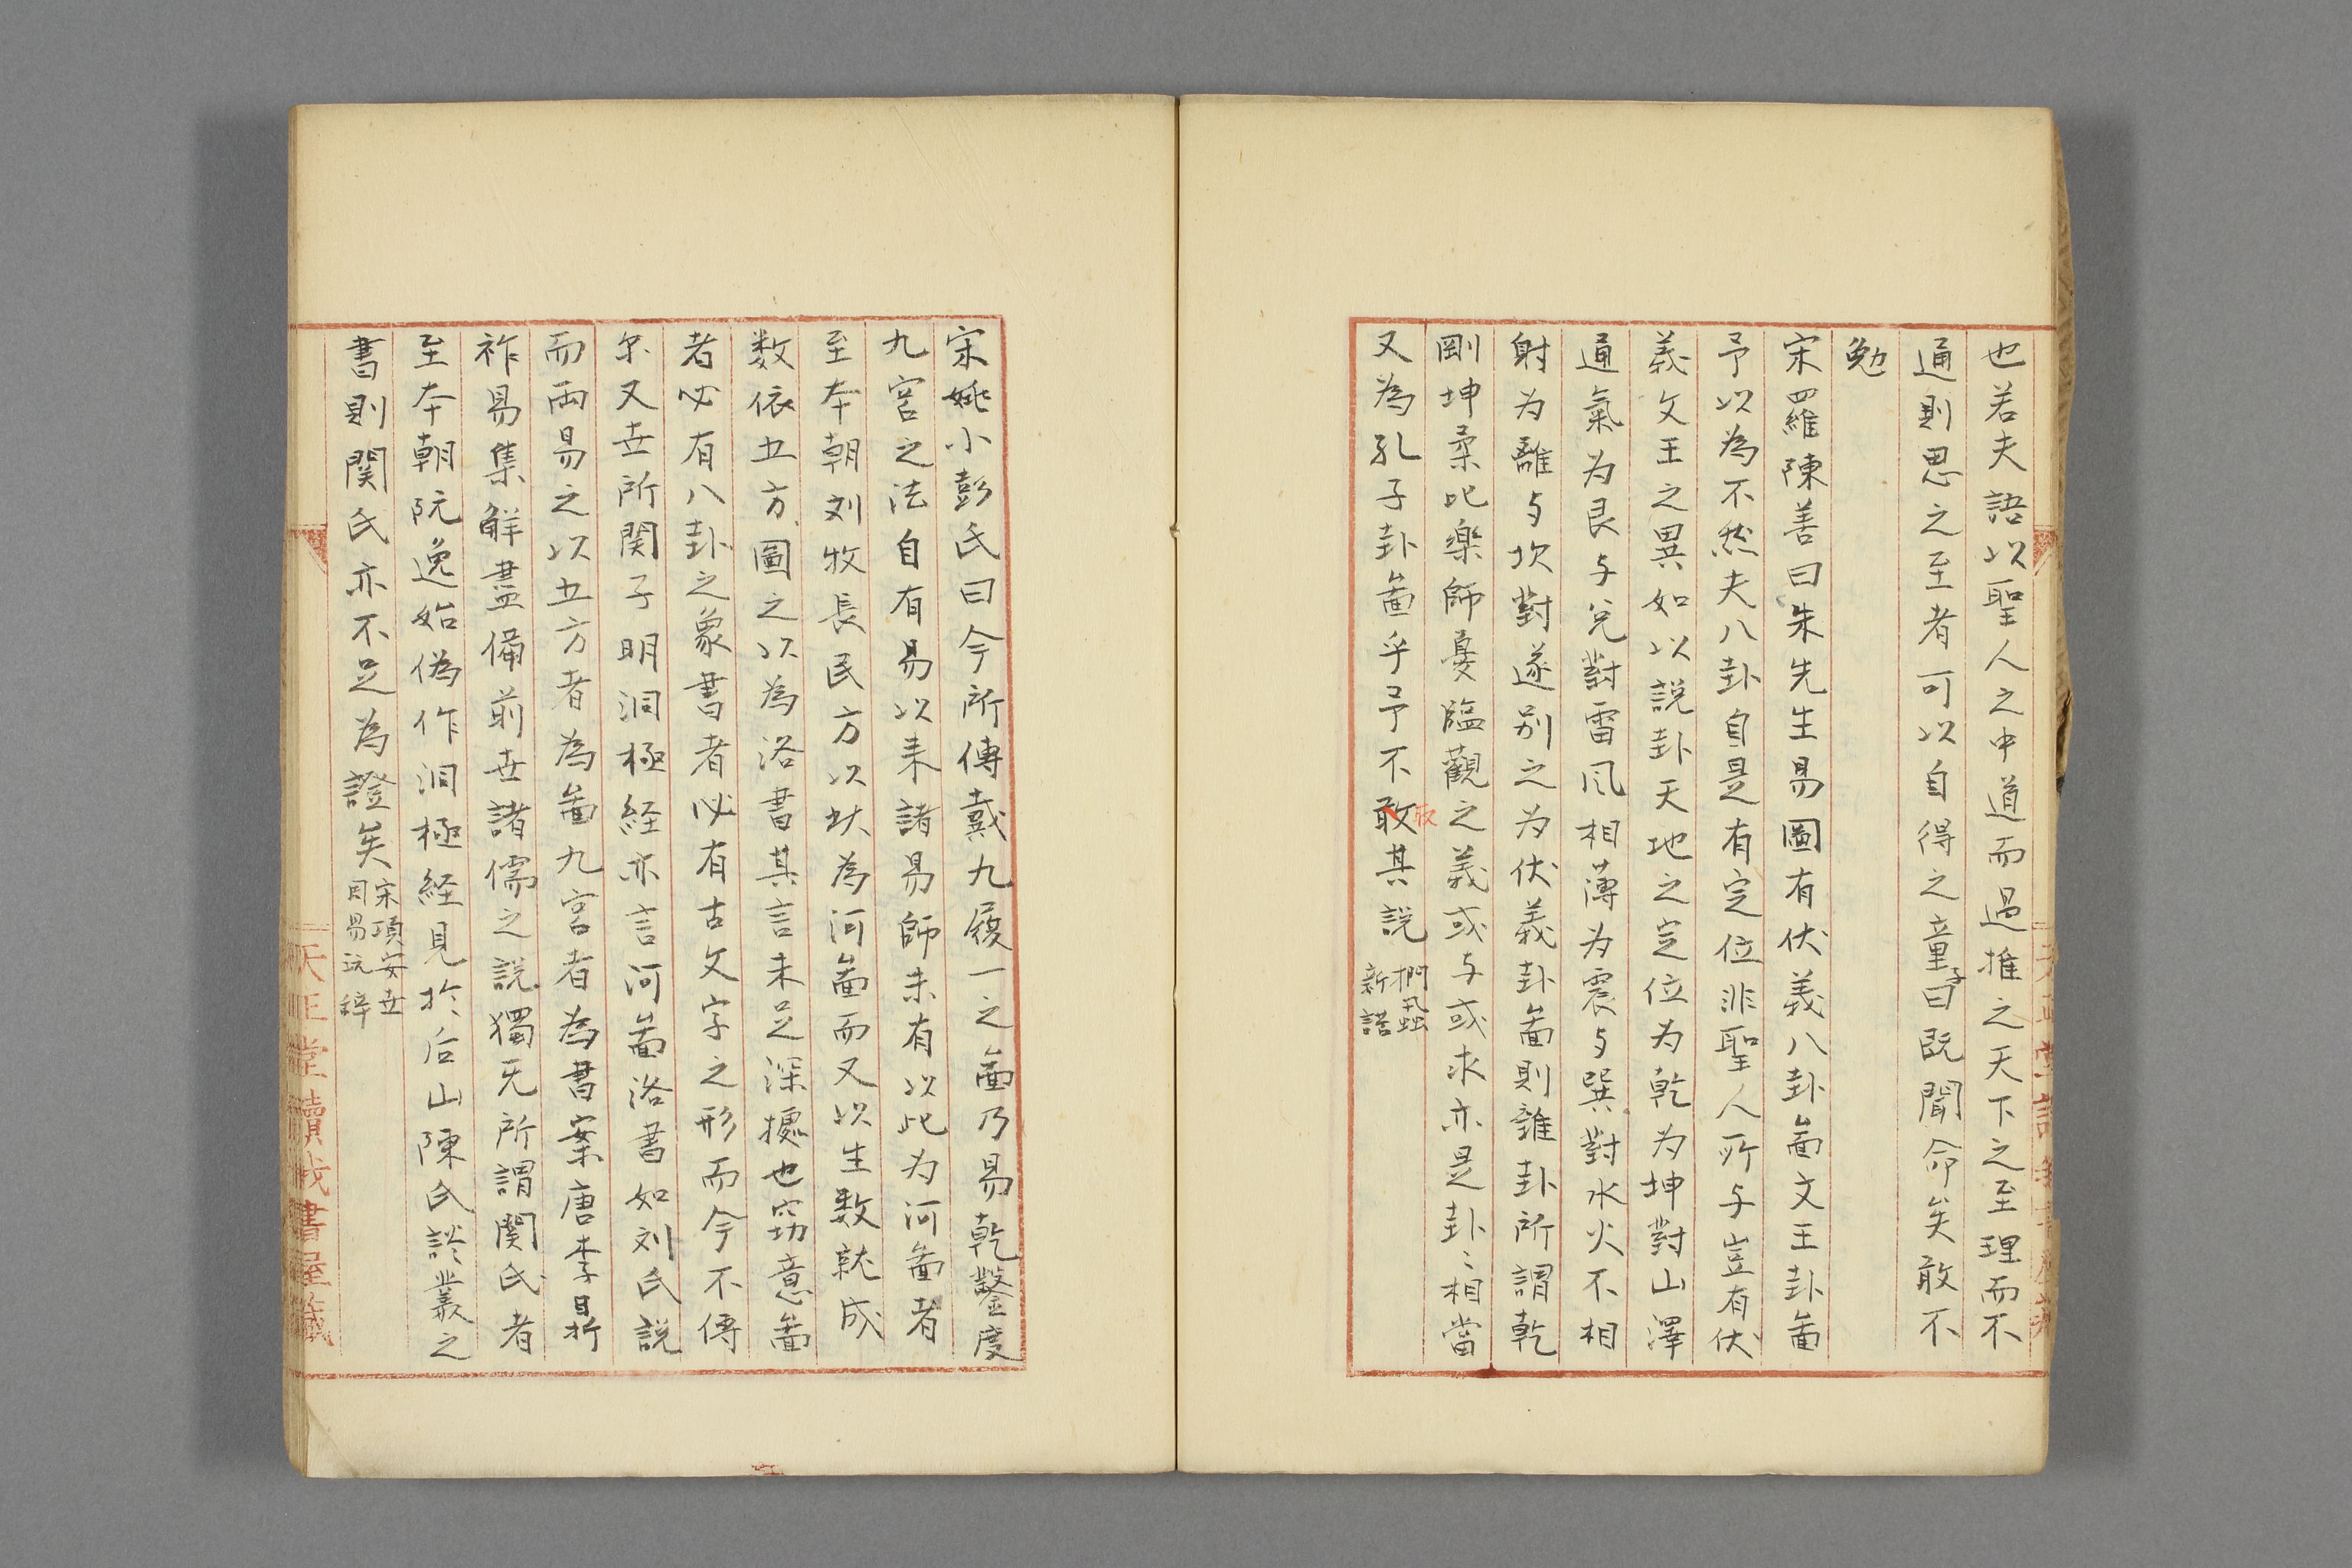 也若夫語以聖人之中道而過推之天下之至理而不
通則思之至者可以自得之童子曰既聞命矣敢不
勉
宋羅陳善曰朱先生易圖有伏義八卦啚文王卦啚
予以為不然夫八卦自是有定位非聖人所与豈有伏
義文王之異如以說卦天地之定位为乾为坤對山澤
通氣为艮与兌對雷风相薄为震与巽對水火不相
射为離与坎對遂别之为伏義卦啚則雜卦所謂乾
剛坤柔比楽師憂臨觀之義或与或求亦是卦〻相當
又為孔子卦啚乎予不敢其說
取
捫虱
新話
宋姚小彭氏曰今所傳戴九履一之啚乃易乾鑿度
九宮之法自有易以来諸易師未有以此为河啚者
至本朝刘牧長民方以此為河啚而又以生数就成
数依五方圖之以為洛書其言未足深攄也窃意啚
者必有八卦之象書者必有古文字之形而今不傳
尔又世所関子明洞極経亦言河啚洛書如刘氏說
而両易之以五方者為啚九宮者為書案唐李鼎
祚易集解盡備前世諸儒之說獨旡所謂関氏者
至本朝阮逸始偽作洞極経見於后山陳氏談叢之
書則関氏亦不足為證矣
宋項安世
周易玩辞
天正堂讀我書屋箴